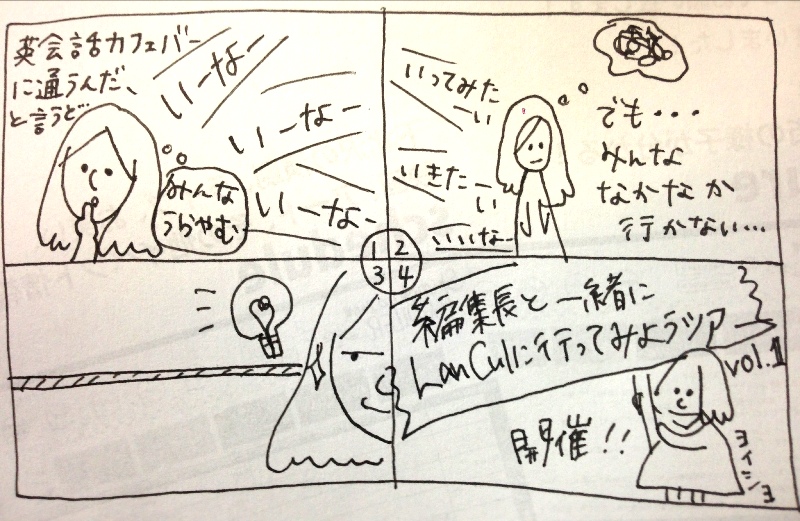 英会話カフェバー
に通うんだ、
と言うと
いーなー
いーなー
いーなー
みんな
うらやむ
いってみた
ーい
いきたー
い
いいなー
でも・・・
みんな
なかなか
行かない…
1 2
3 4
編集長と一緒に
LanCulに行ってみようツアー
vol.1
開催!!
ヨイショ